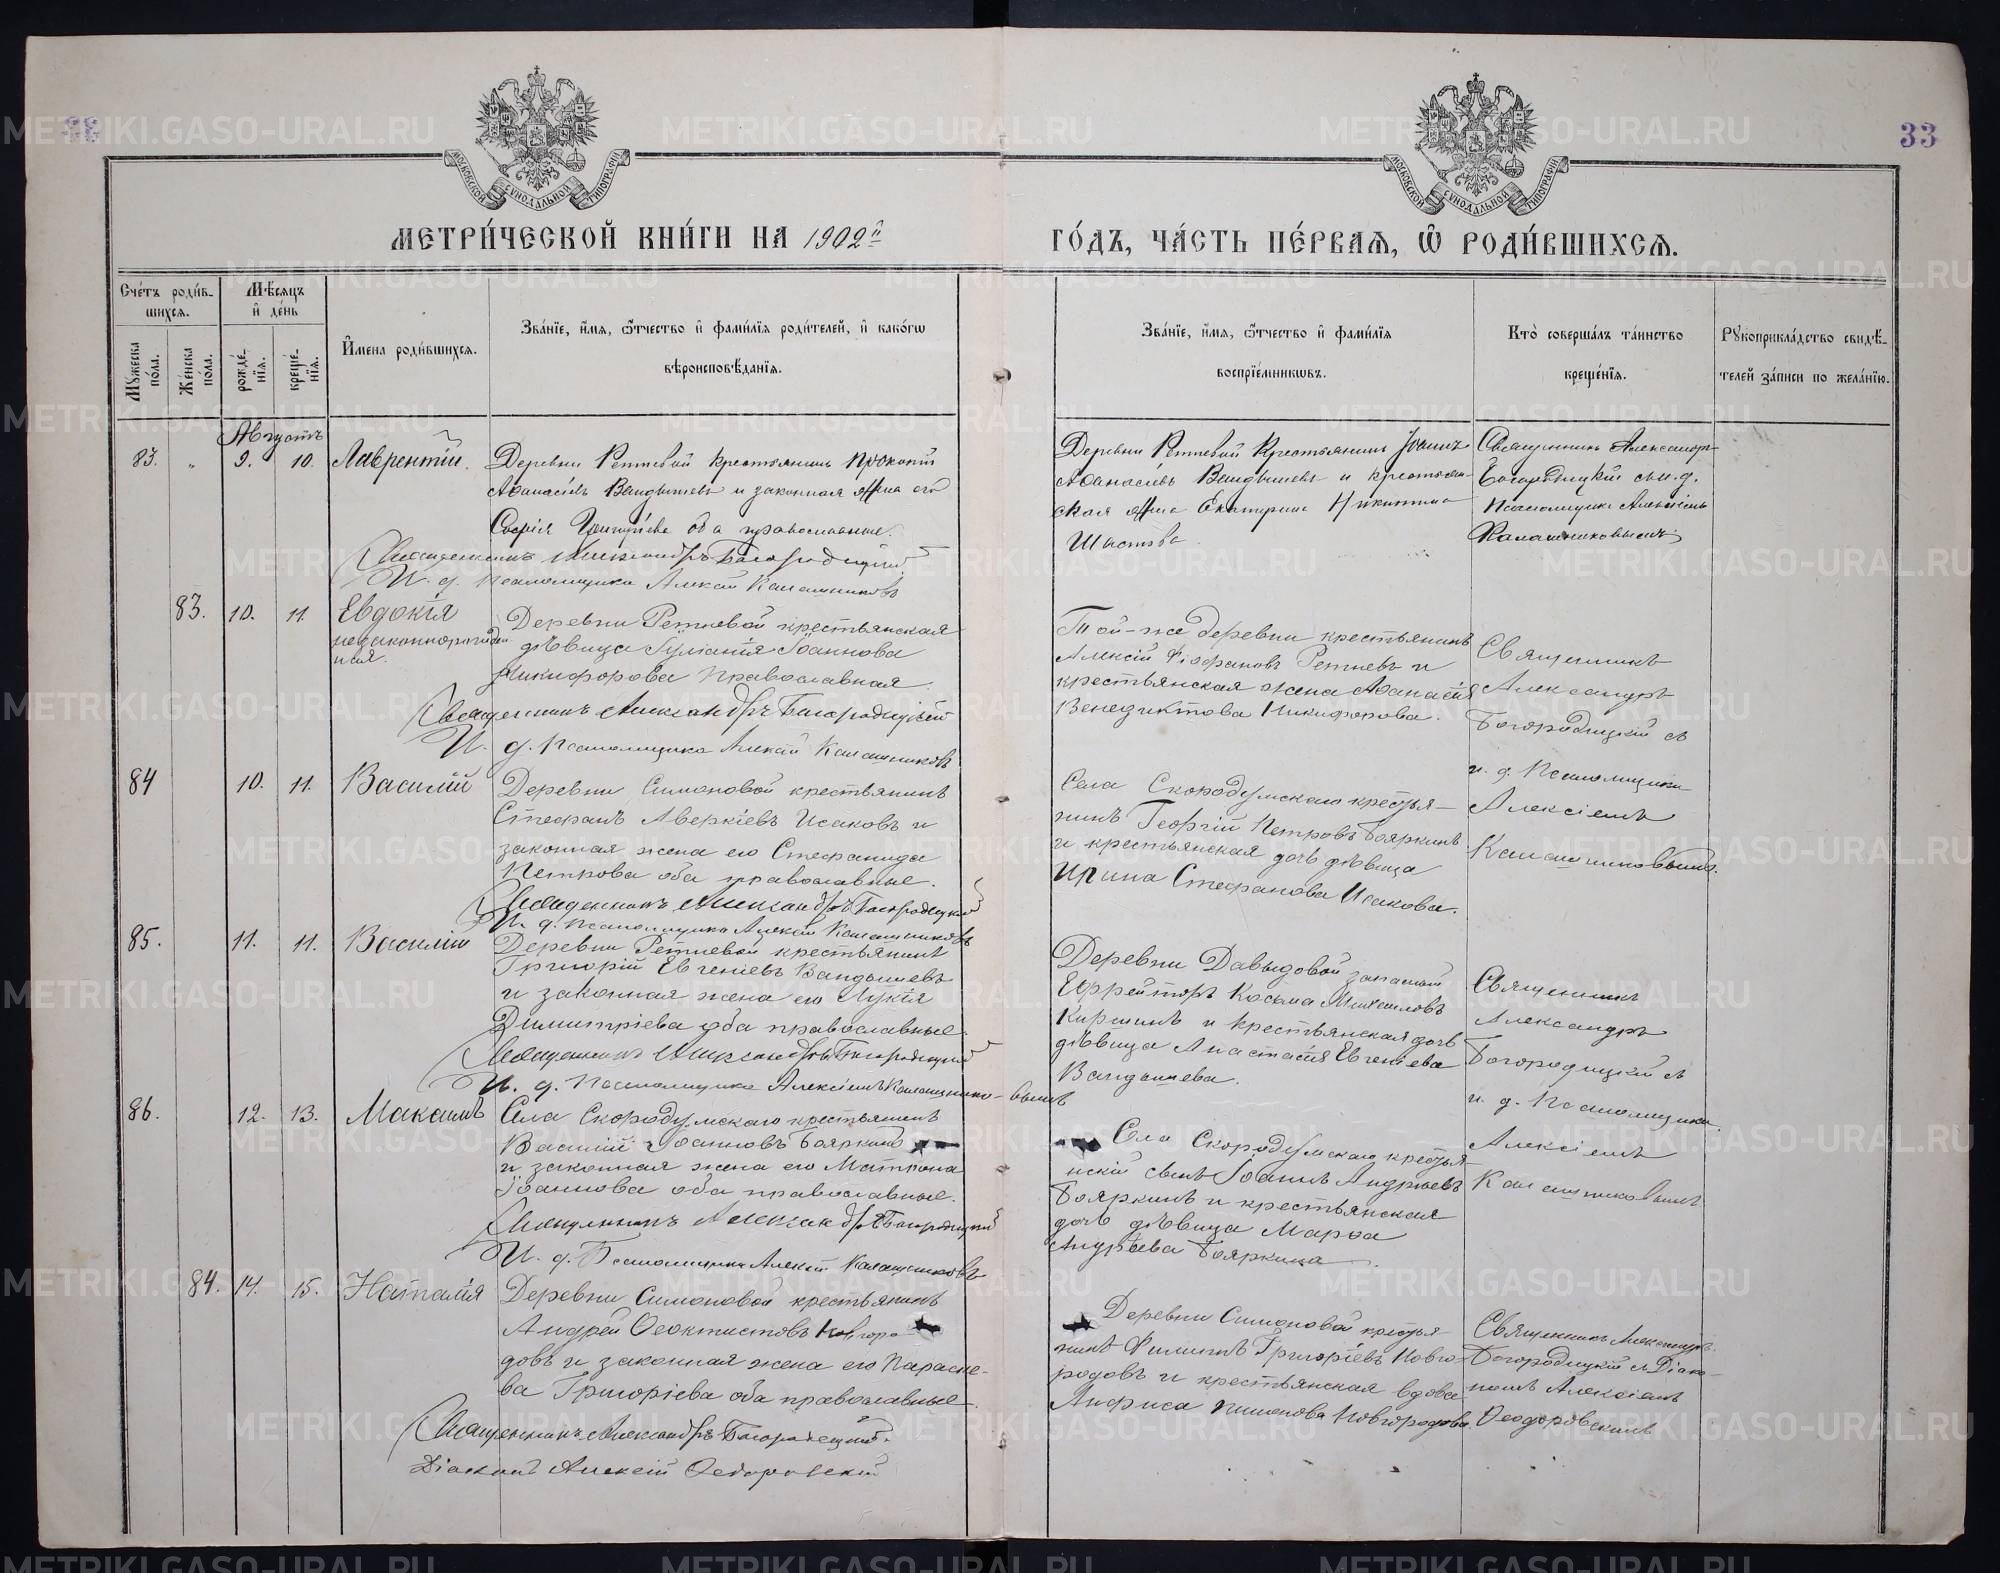 33
МОСКОВСКОЙ СѴНОДАЛЬНОЙ ТИПОГРАФІИ
МОСКОВСКОЙ СѴНОДАЛЬНОЙ ТИПОГРАФІИ
МЕТРИ́ЧЕСКОЙ КНИ́ГИ НА 1902й
ГО́ДЪ, ЧА́СТЬ ПЕ́РВАЯ, Ѡ҆ РОДИ́ВШИХСЯ.
Сче́тъ роди́в-
шихся.
Мꙋ́жеска по́ла.
Же́нска по́ла.
Мѣ́сяцъ
и҆ де́нь
рожде́-
нїя.
креще́-
нїя.
И҆мена роди́вшихся.
Зва́нїе, и҆́мя, ѻ҆́тчество и҆ фами́лїя роди́телей, и҆ како́гѡ
вѣроисповѣ́данїя.
Зва́нїе, и҆́мя, ѻ҆́тчество и҆ фами́лїя
воспрїе́мникѡвъ.
Кто̀ соверша́лъ та́инство
креще́нїя.
Рꙋкоприкла́дство свидѣ́-
телей за́писи по жела́нїю.
Августъ
83. " 9. 10. Лаврентій.
Деревни Ретневой крестьянинъ Прокопій
Аѳанасіевъ Вандышевъ и законная жена его
Софія Григоріева оба православные.
Священникъ Александръ Богородицкій
И. д. Псаломщика Алексій Калашниковъ
Деревни Ретневой Крестьянинъ Іоаннъ
Аѳанасіевъ Вандышевъ и крестьян-
ская жена Екатерина Никитина
Священникъ Александръ
Богородицкій съ и. д.
Псаломщика Алексіемъ
Калашниковымъ
83. 10. 11. Евдокія
незаконнорожден
ная.
Деревни Ретневой крестьянская
дѣвица Іуліанія Іоаннова
Никифорова православная.
Священникъ Александръ Богородицкій
И. д. Псаломщика Алексій Калашниковъ
Той-же деревни крестьянинъ
Алексій Ѳеофановъ Ретневъ и
крестьянская жена Аѳанасія
Венедиктова Никифорова.
Священникъ
Александръ
Богородицкій съ
и. д. Псаломщика
Алексіемъ
Калашниковымъ.
84 10. 11. Василій
Деревни Симоновой крестьянинъ
Стефанъ Аверкіевъ Исаковъ и
законная жена его Стефанида
Петрова оба православные.
Священникъ Александръ Богородицкій
И. д. Псаломщика Алексій Калашниковъ
Села Скородумскаго крестья-
нинъ Георгій Петровъ Бояркинъ
и крестьянская дочь дѣвица
Ирина Стефанова Исакова.
85. 11. 11. Василій
Деревни Ретневой крестьянинъ
Григорій Евгеніевъ Вандышевъ
и законная жена его Лукія
Димитріева оба православные.
Священникъ Александръ Богородицкій
И. д. Псаломщика Алексіемъ Калашнико-вымъ
Деревни Давыдовой запасный
Ефрейторъ Косьма Михаиловъ
Киршинъ и крестьянская дочь
дѣвица Анастасія Евгеніева
Вандышева.
Священникъ
Александръ
Богородицкій съ
и. д. Псаломщика
Алексіемъ
Калашниковымъ
86. 12. 13. Максимъ
Села Скородумскаго крестьянинъ
Василій Іоанновъ Бояркинъ
и законная жена его Матрона
Іоаннова оба православные.
Священникъ Александръ Богородицкій
И. д. Псаломщика Алексій Калашниковъ
Села Скородумскаго крестья-
нскій сынъ Іоаннъ Андреевъ
Бояркинъ и крестьянская
дочь дѣвица Марѳа
Андреева Бояркина.
84. 14. 15. Наталія
Деревни Симоновой крестьянинъ
Андрей Ѳеоктистовъ Новгоро-
довъ и законная жена его Параске-
ва Григоріева оба православные.
Священникъ Александръ Богородицкій.
Діаконъ Алексій Ѳедоровскій
Деревни Симоновой крестья-
нинъ Филиппъ Григоріевъ Новго-
родовъ и крестьянская вдова
Анфиса Новгородова.
Священникъ Александръ
Богородицкій съ Діако-
номъ Алексіемъ
Ѳеодоровскимъ
METRIKI.GASO-URAL.RU